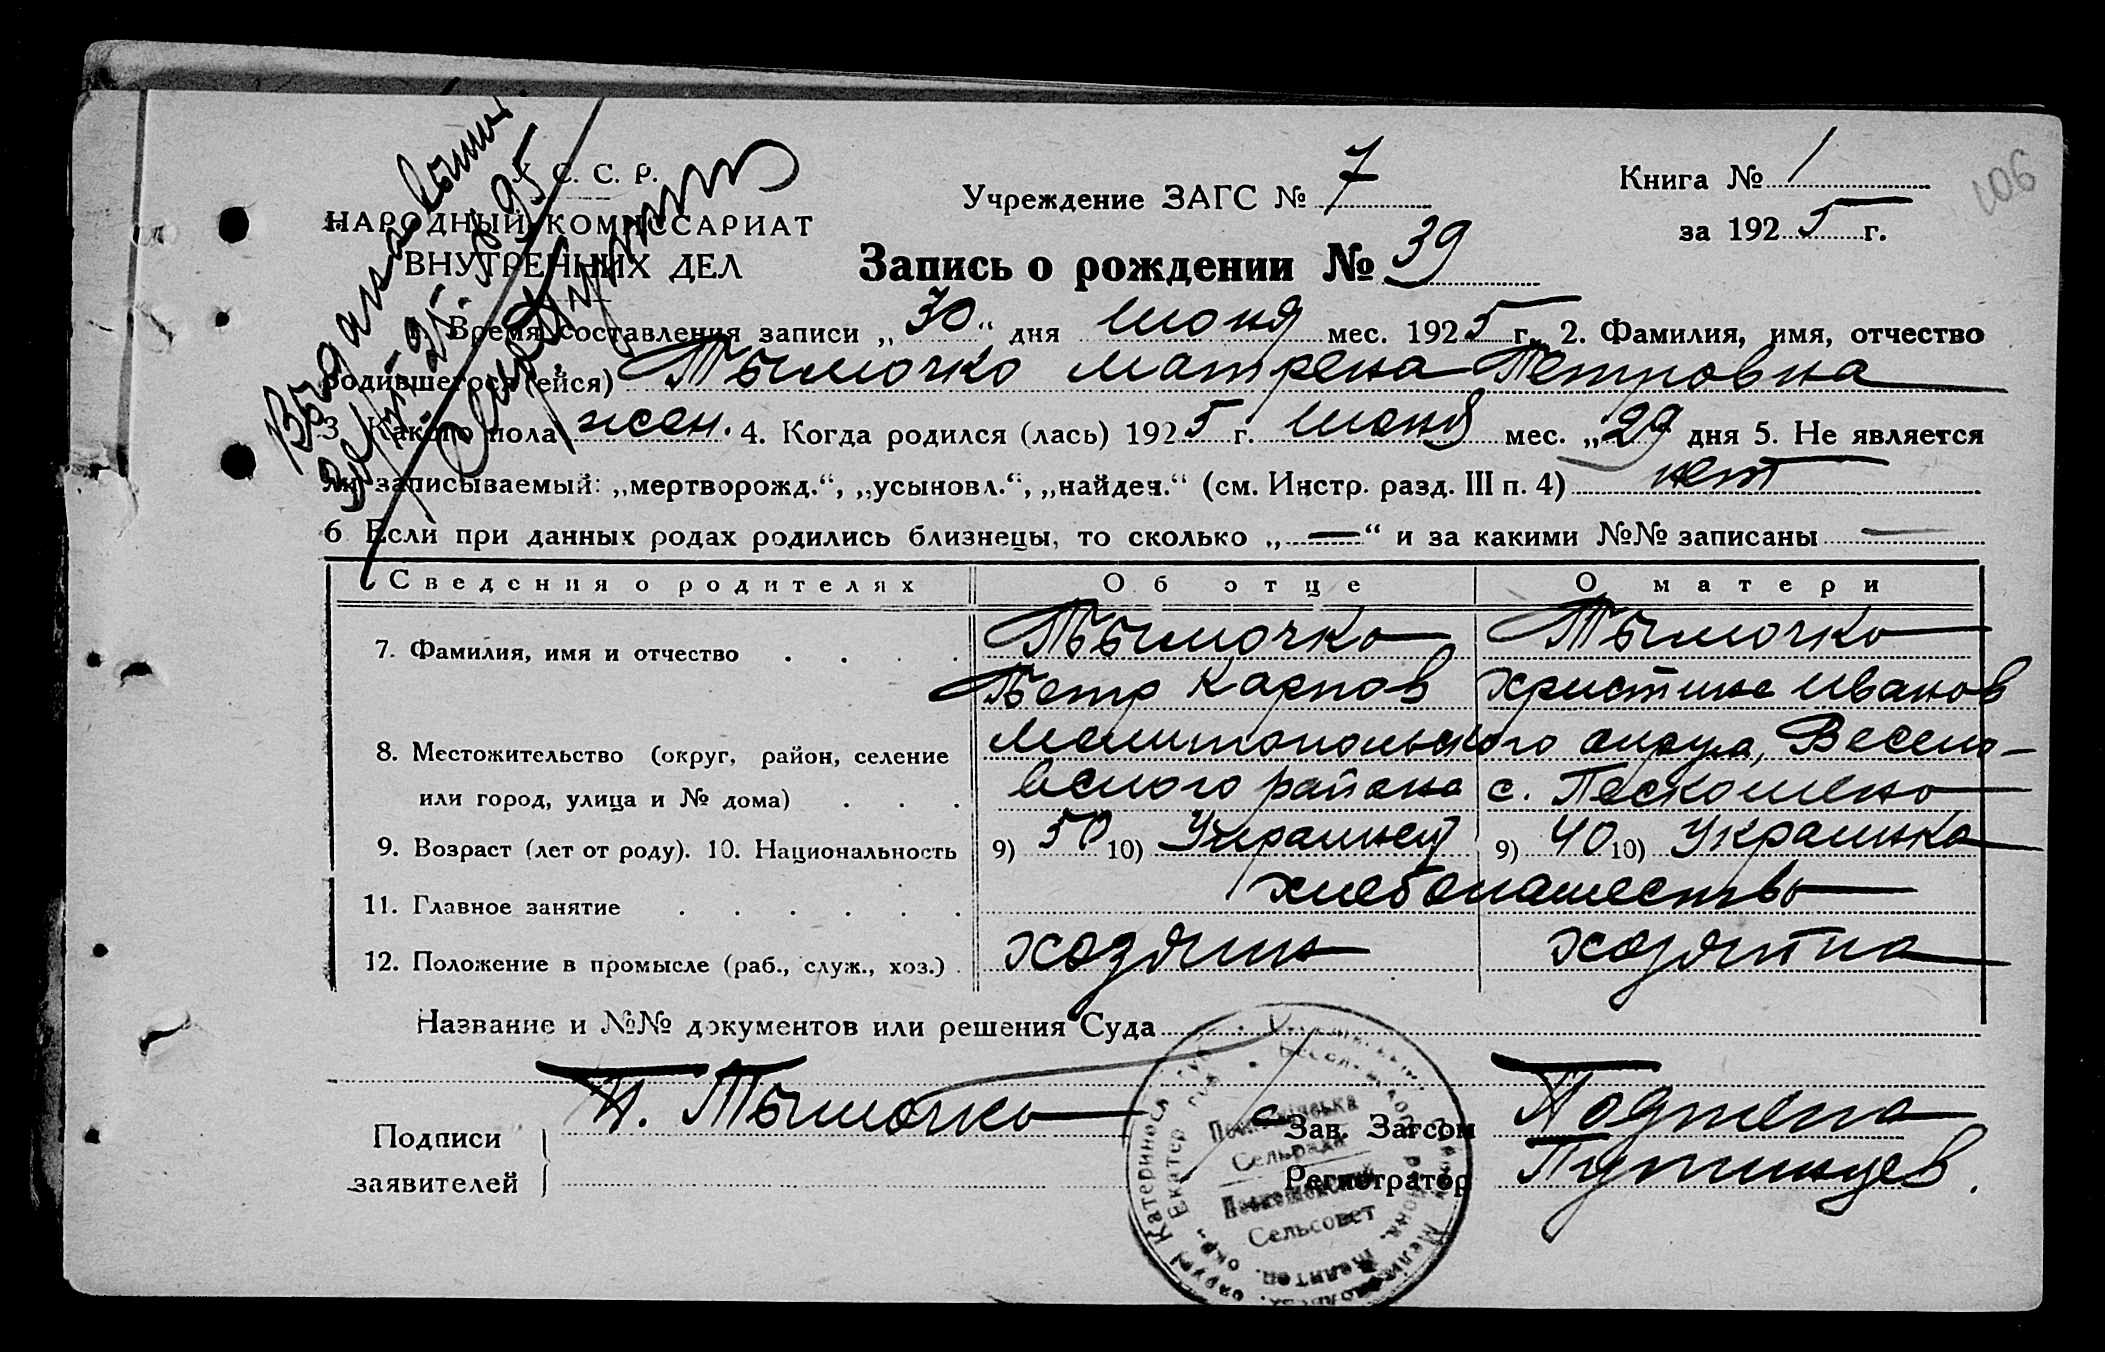 У. С. С. Р.
НАРОДНЫЙ КОМИССАРИАТ
ВНУТРЕННИХ ДЕЛ
Учреждение ЗАГС № 7
Книга № 1
за 1925 г.
106
Запись о рождении № 39
Время составления записи „30“ дня июня мес. 1925 г. 2. Фамилия, имя, отчество
родившегося (ейся) Тымочко Матрена Петровна
3. Какого пола жен. 4. Когда родился (лась) 1925 г. июня мес. „29 дня 5. Не является
ли записываемый: „мертворожд.“, „усыновл.“, „найден.“ (см. Инстр. разд. III п. 4) нет
6 Если при данных родах родились близнецы, то сколько „—“ и за какими №№ записаны —
Сведения о родителях Об отце О матери
7. Фамилия, имя и отчество . . . . Тымочко Тымочко
Петр Карпов Христина Иванов
8. Местожительство (округ, район, селение Мелитопольского округа, Весело-
или город, улица и № дома) . . . вского района с. Пескошено
9. Возраст (лет от роду). 10. Национальность 9) 50 10) Украинец 9) 40 10) Украинка
11. Главное занятие . . . . . . хлебопашество
12. Положение в промысле (раб., служ., хоз.) . хозяин хозяйка
Название и №№ документов или решения Суда
П. Тымочко
Подписи
заявителей
Зав. Загсом
Регистратор Путинцев.
Сельрада
Сельсовет